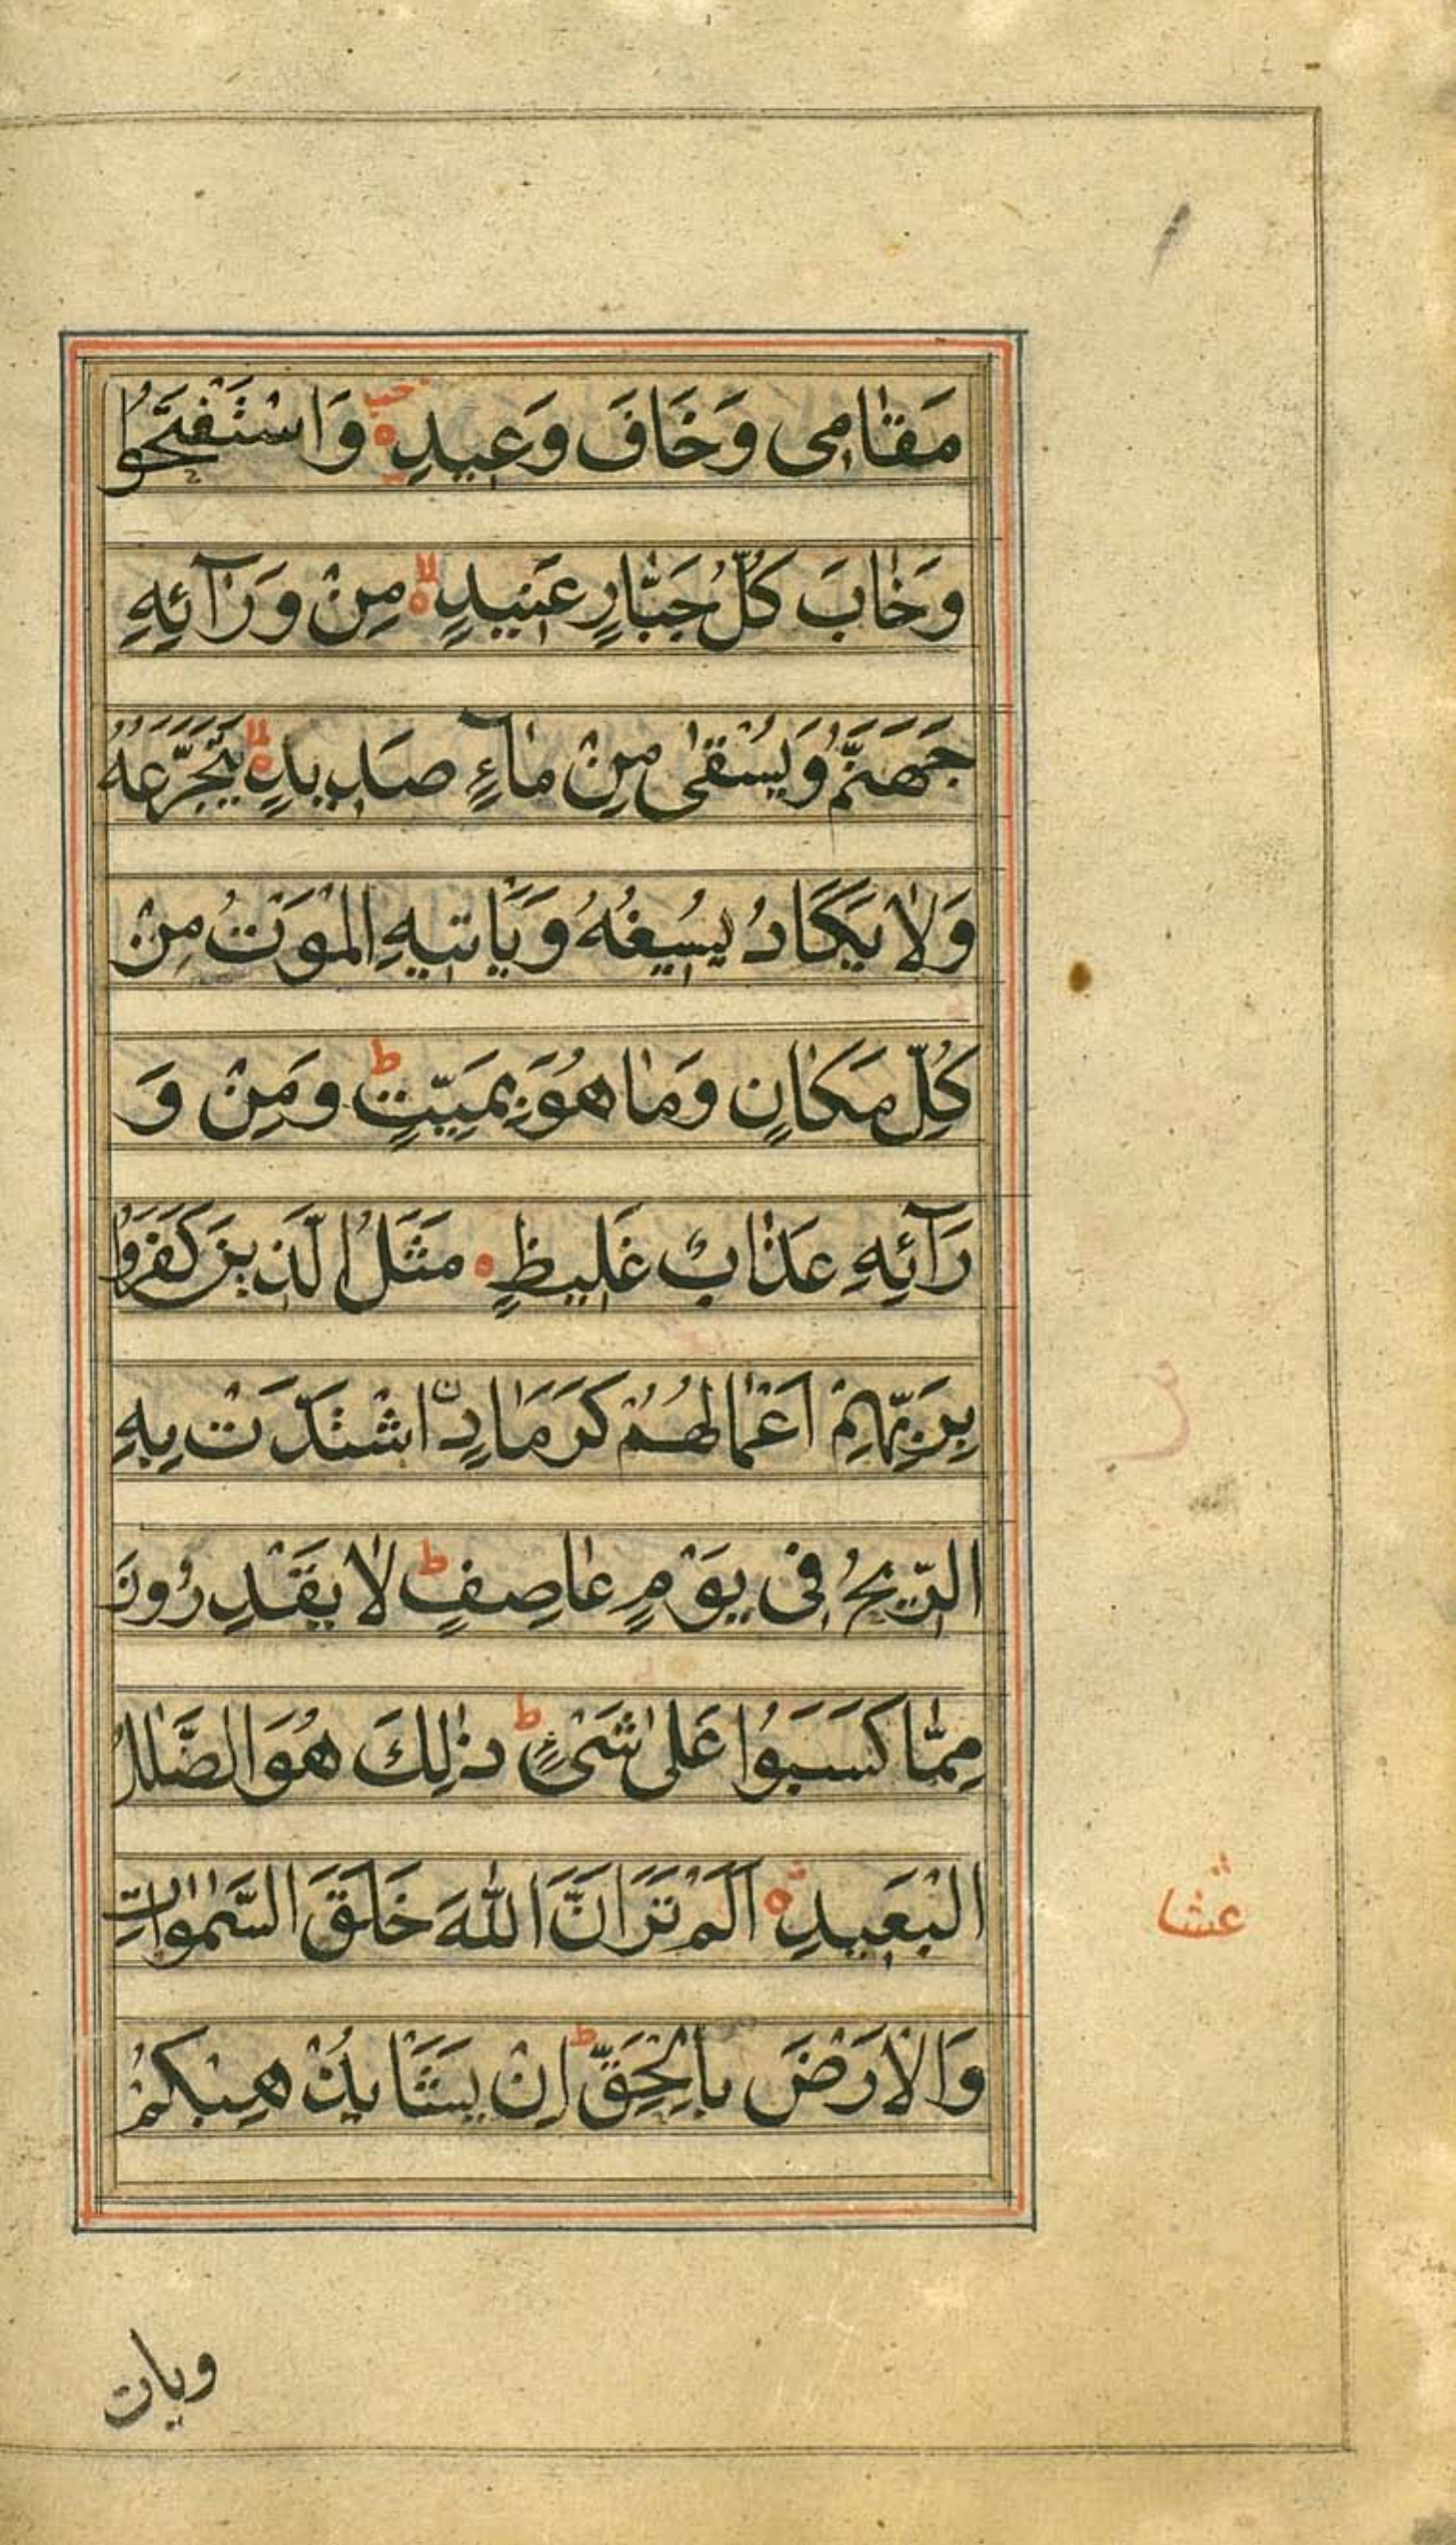 مَقَامِی وَخَافَ وَعِيدِ وَاسْتَفْتَحُوا
وَخَابَ كُلُّ جَبَّارٍ عَنِيدٍ مِنْ وَرَآئِهِ
جَهَنَّمُ وَيُسْقٰى مِنْ مَآءٍ صَدِيدٍ يَتَجَرَّعُهُ
وَلَا يَكَادُ يُسِيغُهُ وَيَأْتِيهِ الْمَوْتُ مِنْ
كُلِّ مَكَانٍ وَمَا هُوَ بِمَيِّتٍ ط وَمِنْ وَ
رَآئِهِ عَذَابٌ غَلِيظٍ مَثَلُ الَّذِينَ كَفَرُوا
بِرَبِّهِمْ اَعْمَالُهُمْ كَرَمَادِنِ اشْتَدَّتْ بِهِ
الرِّيحُ فِی يَوْمٍ عَاصِفٍ ط لَا يَقْدِرُونَ
مِمَّا كَسَبُوا عَلٰى شَیْءٍ ط ذٰلِكَ هُوَ الضَّلٰلُ
الْبَعِيدِ اَلَمْ تَرَ اَنَّ اللّٰهَ خَلَقَ السَّمٰوَاتِ
وَالْاَرْضَ بِالْحَقِّ ط اِنْ يَشَأْ يُذْهِبْكُمْ
عشا
ويات